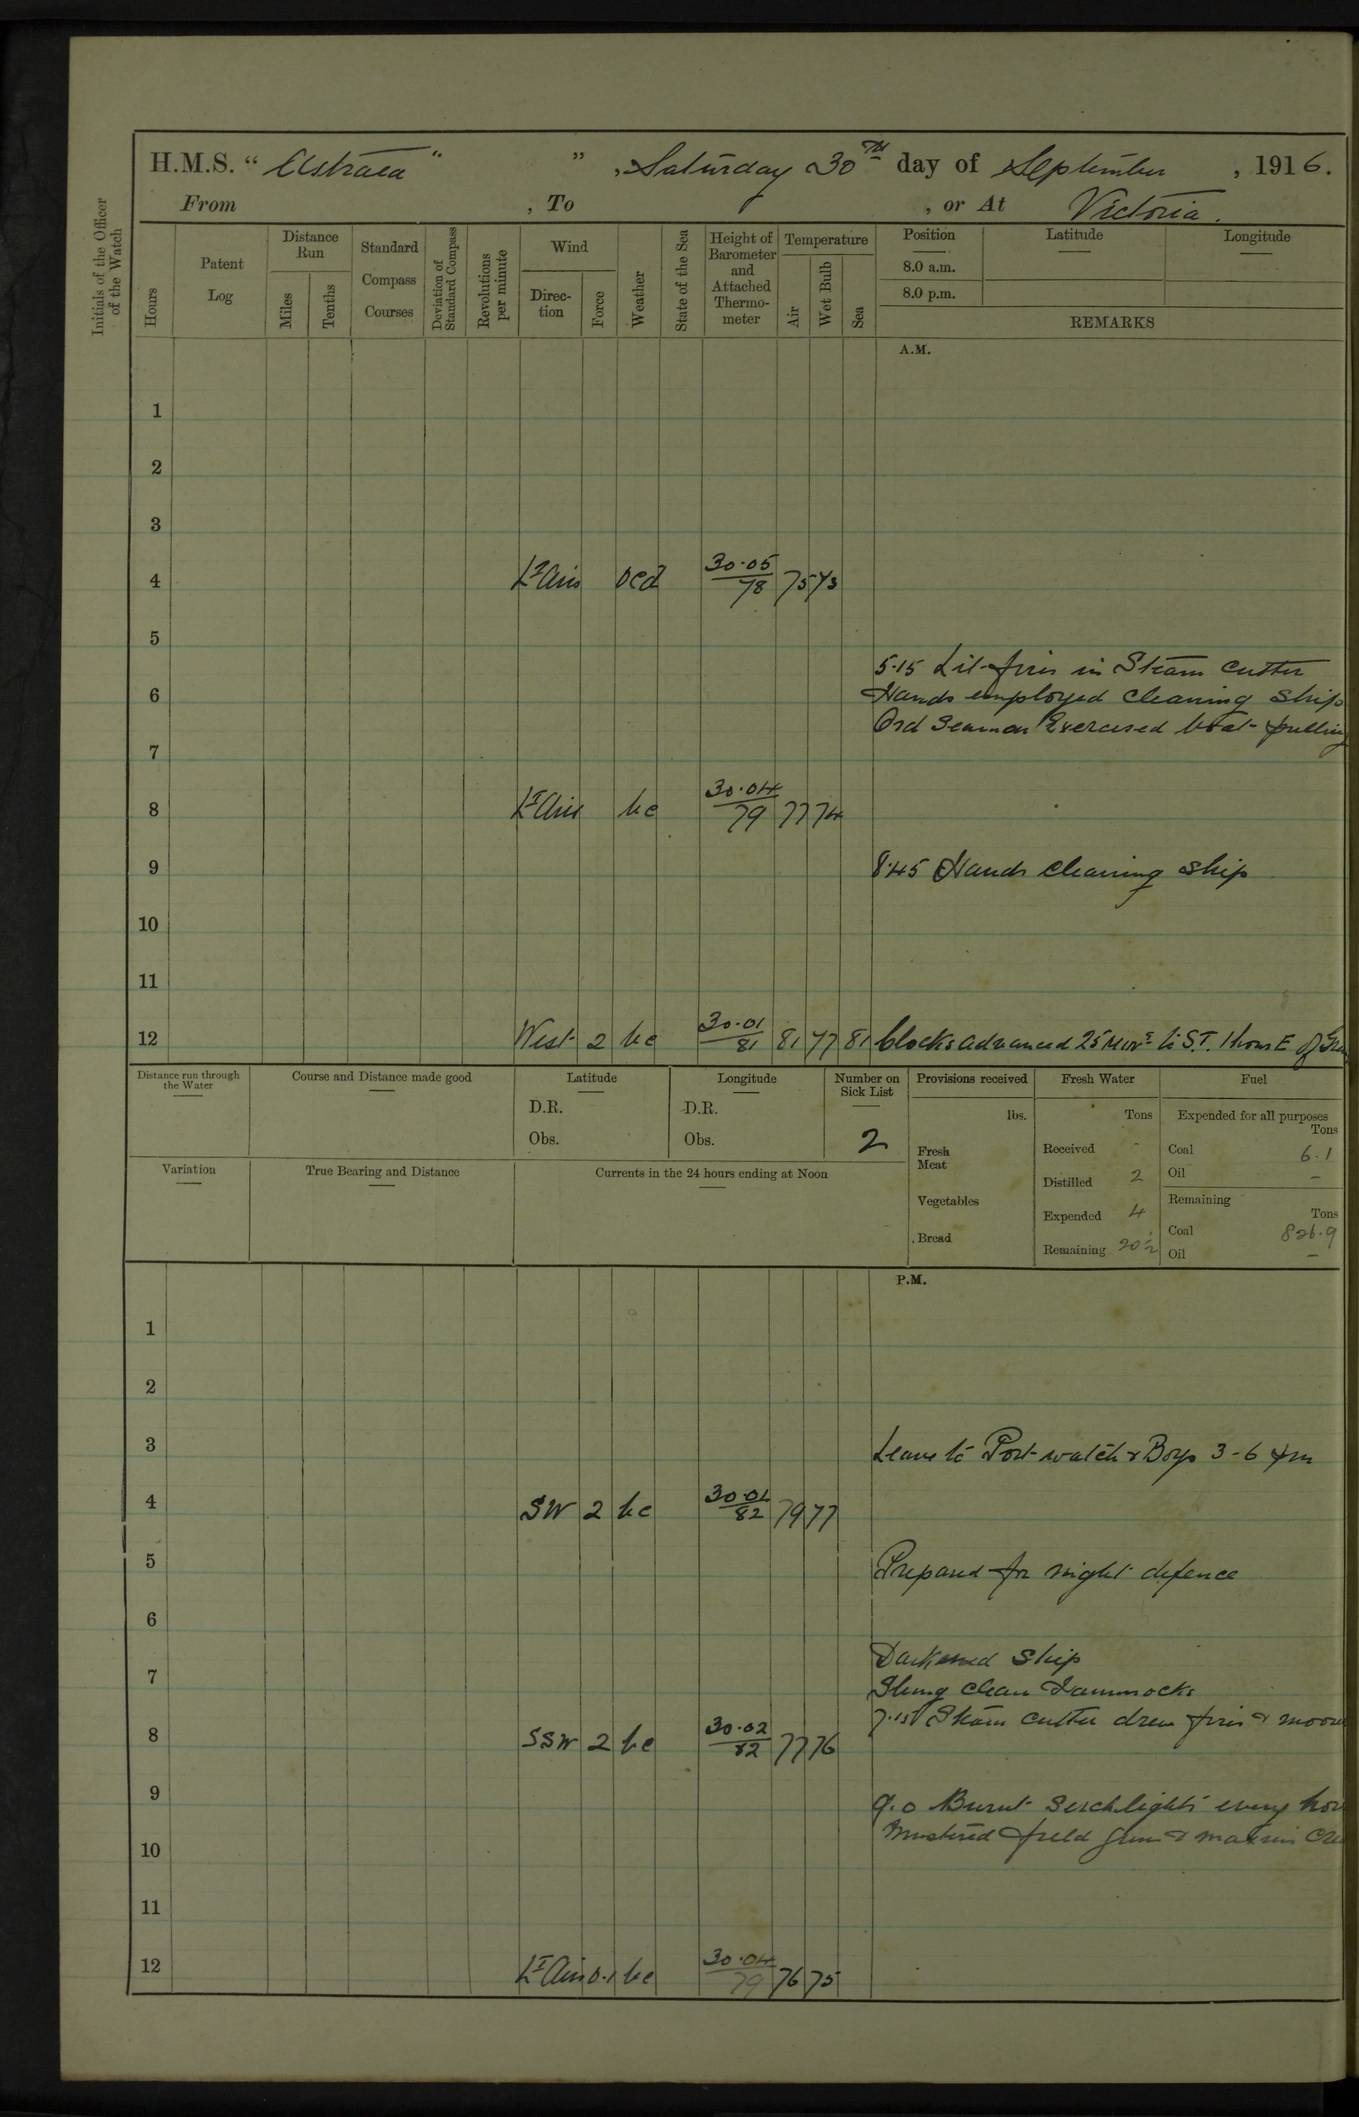 H.M.S. " Astraea " ", Saturday 30th day of September, 1916.
From , To , or At Victoria.
Initials of the Officer of the Watch
Hours
Patent Log
Distance Run
Miles
Tenths
Standard Compass Courses
Deviation of Standard Compass
Revolutions per minute
Wind
Direction
Force
Weather
State of the Sea
Height of Barometer and Attached Thermometer
Temperature
Air
Wet Bulb
Sea
Position Latitude Longitude
8.0 a.m.
8.0 p.m.
REMARKS
A.M.
1
2
3
4 Lt Airs ocd 30.05/78 75 73
5
5.15 Lit fires in Steam Cutter
6 Hands employed cleaning Ship
Ord Seaman Exercised boat pulling
7
8 Lt Airs bc 30.04/79 77 74
9 8.45 Hands cleaning ship
10
11
12 West 2 bc 30.01/81 81 77 81 Clocks advanced 25 mins to S.T. 1 hour E of
Distance run through the Water
Course and Distance made good
Latitude
D.R.
Obs.
Longitude
D.R.
Obs.
Number on Sick List
2
Variation
True Bearing and Distance
Currents in the 24 hours ending at Noon
Provisions received
lbs.
Fresh Meat
Vegetables
Bread
Fresh Water
Tons
Received -
Distilled 2
Expended 4
Remaining 20½
Fuel
Expended for all purposes
Tons
Coal 6.1
Oil –
Remaining
Tons
Coal 826.9
Oil –
P.M.
1
2
3 Leave to Port watch & Boys 3-6 pm
4 SW 2 bc 30.01/82 79 77
5 Prepared for night defence
6
Darkened Ship
7 Slung clean Hammocks
7.15 Steam cutter drew fires &
8 SSW 2 bc 30.02/82 77 76
9 9.0 Burnt Serchlights every
Mustered field gun & maxim
10
11
12 Lt Airs 0.1 bc 30.04/79 76 75